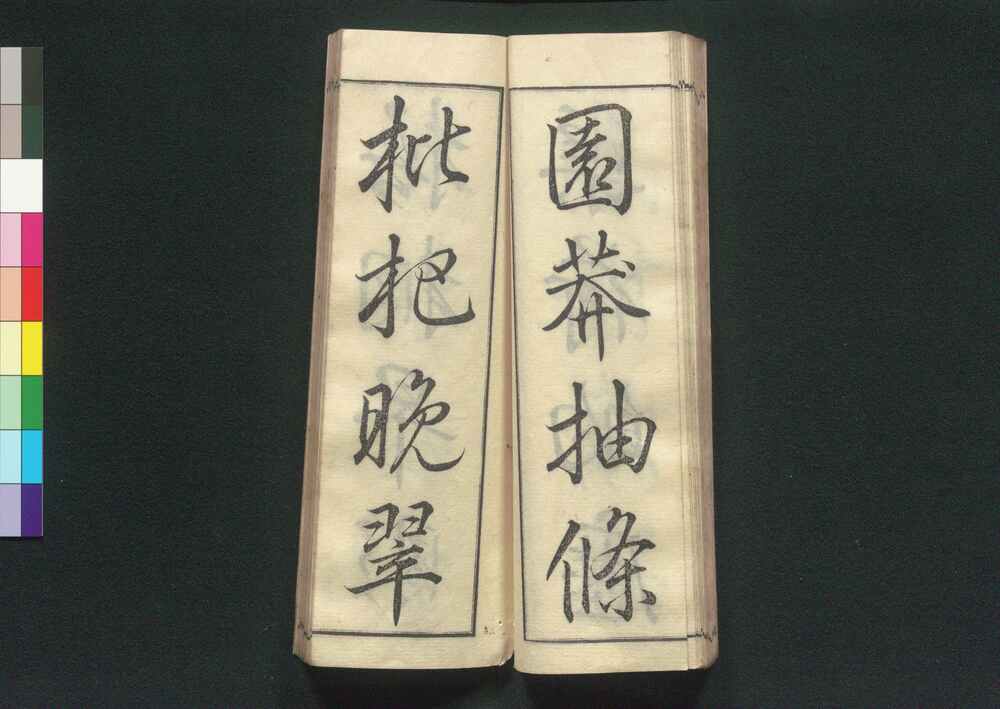 園莽抽條
枇杷晚翠